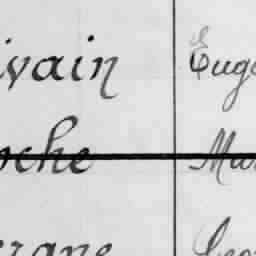 ivain Euge
oche Mar
erane Leo